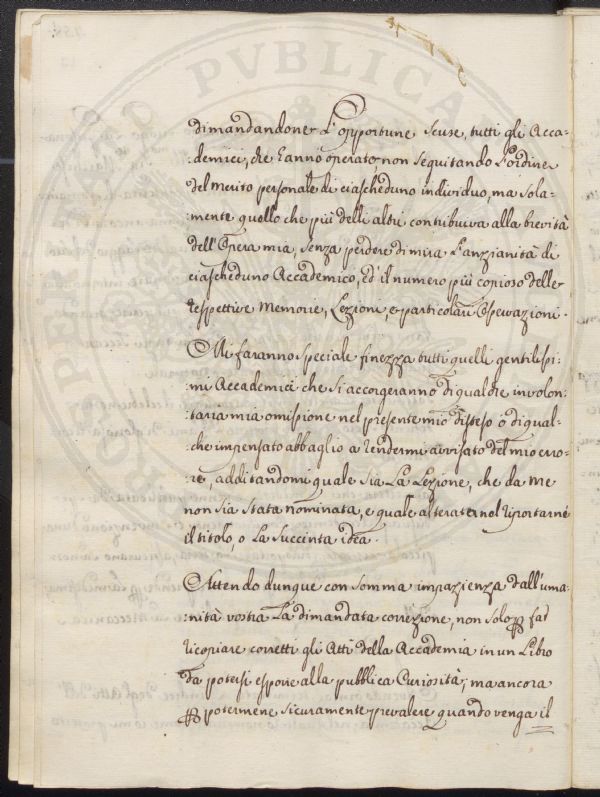 dimandandone l'opportune scuse, tutti gli Acca-
:demici, che hanno operato non seguitando l'ordine
del merito personale di ciascheduno individuo, ma sola-
:mente quello che più delli altri contribuiva alla brevità
dell'Opera mia, senza perdere di mira l'anzianità di
ciascheduno Accademico, ed il numero più copioso delle
respettive Memorie, Lezioni, e particolari Osservazioni.
Mi faranno speciale finezza tutti quelli gentilissi-
:mi Accademici che si accorgeranno di qualche involon-
:taria mia omissione nel presente mio disteso o di qual-
:che impensato abbaglio a rendermi avvisato del mio erro-
:re, additandomi quale sia la Lezione, che da me
non sia stata nominata, e quale alterata nel riportarne
il titolo, o la succinta idea.
Attendo dunque con somma impazienza dall'uma-
:nità vostra la dimandata correzione, non solo p far
ricopiare corretti gli Atti della Accademia in un Libro
da potersi esporre alla pubblica Curiosità; ma ancora
p potermene sicuramente prevalere quando venga il
PVBLICA